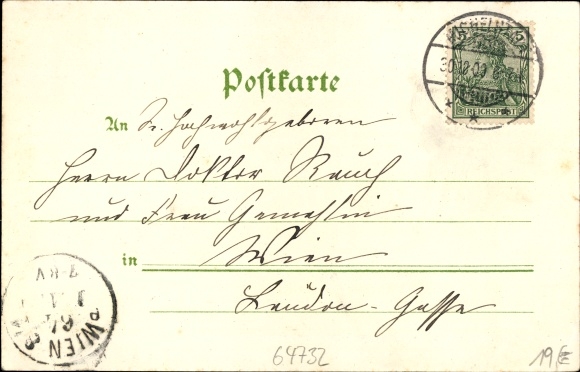 Postkarte
An Sr. Hochwohlgeboren
Herrn Doktor Rauch
und Frau Gemahlin
in Wien
Laudon-Gasse
REICHSPOST
WIEN
64732
19/E